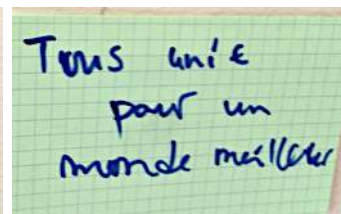 Tous unis
pour un
monde meilleur